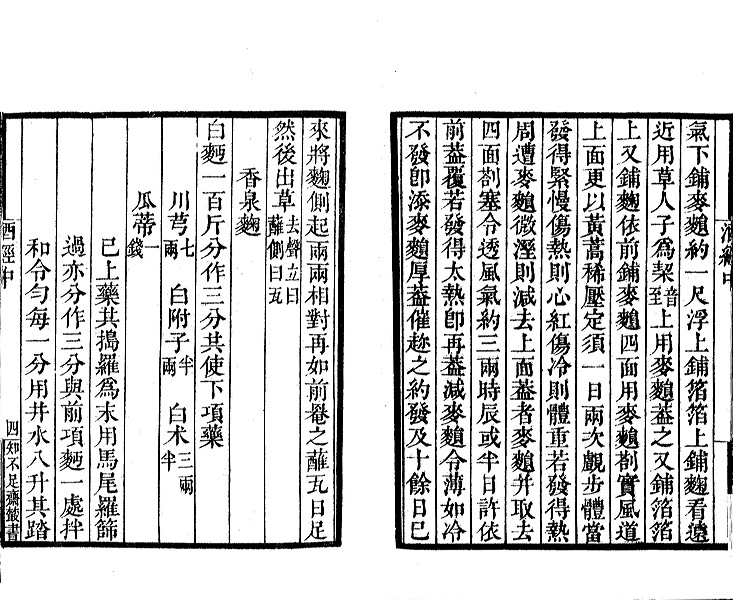 氣下鋪麥䴬約一尺浮上鋪箔箔上鋪麴看遠
近用草人子爲契音至上用麥䴬蓋之又鋪箔箔
上又鋪麴依前鋪麥䴬四面用麥䴬劄實風道
上面更以黃蒿稀壓定須一日兩次覷步體當
發得緊慢傷熱則心紅傷冷則體重若發得熱
周遭麥䴬微溼則減去上面蓋者麥䴬并取去
四面劄塞令透風氣約三兩時辰或半日許依
前蓋覆若發得太熱卽再蓋減麥䴬令薄如冷
不發卽添麥䴬厚蓋催趂之約發及十餘日已
來將麴側起兩兩相對再如前罨之蘸瓦日足
然後出草去聲立曰蘸側曰瓦
香泉麴
白麪一百斤分作三分共使下項藥
川芎七兩 白附子半兩 白术三兩半
瓜蒂一錢
已上藥共搗羅爲末用馬尾羅篩
過亦分作三分與前項麪一處拌
和令勻每一分用井水八升其踏
酒經中
四
知不足齋叢書